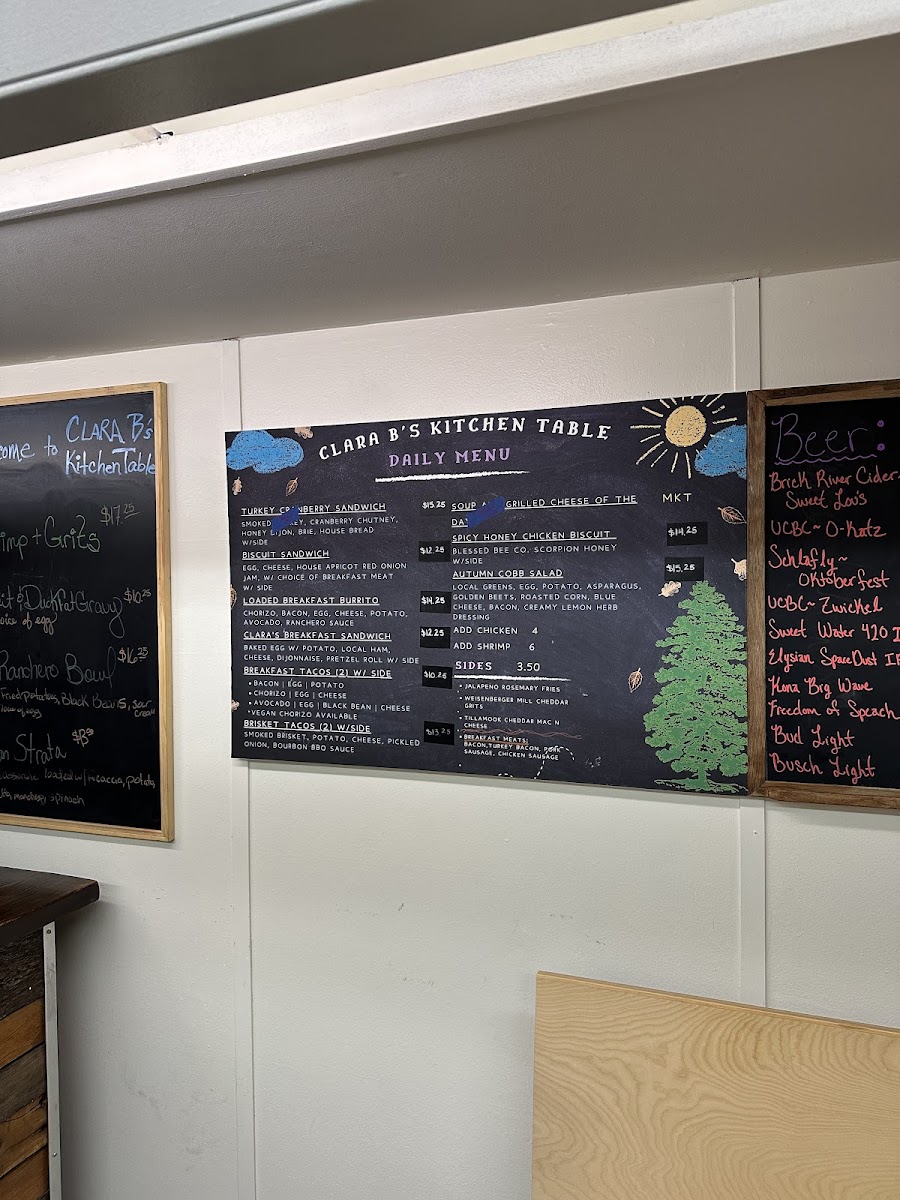 ome to CLARA B's
Kitchen Table
$17.25
imp + Grits
it & Duck Fat Gravy $10.25
oice of egg
Ranchero Bowl $16.25
Fried Potatoes, Black Beans, sour cream
n Strata
loaded w/ focaccia, potato,
spinach
CLARA B'S KITCHEN TABLE
DAILY MENU
TURKEY CRANBERRY SANDWICH $15.25
SMOKED CRANBERRY CHUTNEY,
HONEY DIJON, BRIE, HOUSE BREAD
W/SIDE
BISCUIT SANDWICH $12.25
EGG, CHEESE, HOUSE APRICOT RED ONION
JAM, W/ CHOICE OF BREAKFAST MEAT
W/ SIDE
LOADED BREAKFAST BURRITO $14.25
CHORIZO, BACON, EGG, CHEESE, POTATO,
AVOCADO, RANCHERO SAUCE
CLARA'S BREAKFAST SANDWICH $12.25
BAKED EGG W/ POTATO, LOCAL HAM,
CHEESE, DIJONNAISE, PRETZEL ROLL W/ SIDE
BREAKFAST TACOS (2) W/ SIDE $10.25
• BACON | EGG | POTATO
• CHORIZO | EGG | CHEESE
• AVOCADO | EGG | BLACK BEAN | CHEESE
*VEGAN CHORIZO AVAILABLE
BRISKET TACOS (2) W/SIDE $13.25
SMOKED BRISKET, POTATO, CHEESE, PICKLED
ONION, BOURBON BBQ SAUCE
SOUP GRILLED CHEESE OF THE MKT
DAY
SPICY HONEY CHICKEN BISCUIT $14.25
BLESSED BEE CO. SCORPION HONEY
W/SIDE
AUTUMN COBB SALAD $15.25
LOCAL GREENS, EGG, POTATO, ASPARAGUS,
GOLDEN BEETS, ROASTED CORN, BLUE
CHEESE, BACON, CREAMY LEMON HERB
DRESSING
ADD CHICKEN 4
ADD SHRIMP 6
SIDES 3.50
• JALAPENO ROSEMARY FRIES
• WEISENBERGER MILL CHEDDAR
GRITS
• TILLAMOOK CHEDDAR MAC N
CHEESE
• BREAKFAST MEATS:
BACON, TURKEY BACON, PORK
SAUSAGE, CHICKEN SAUSAGE
Beer:
Brick River Cider~
Sweet Lou's
UCBC~ O-Katz
Schlafly~
Oktoberfest
UCBC~ Zwickel
Sweet Water 420 I
Elysian SpaceDust IP
Kona Big Wave
Freedom of Speach
Bud Light
Busch Light